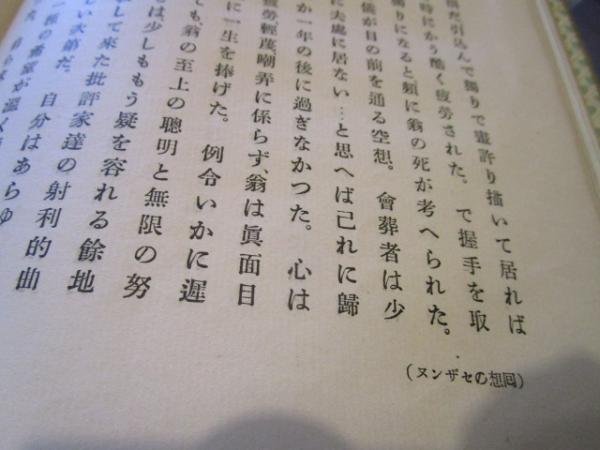 引込んで獨りで畫許り描いて居れば
時にかう酷く疲勞された。で握手を取
獨りになると頻に翁の死が考へられた。
儀が目の前を通る空想。會葬者は少
に夫處に居ない…と思へば己れに歸
か一年の後に過ぎなかつた。心は
疲勞輕蔑嘲弄に係らず、翁は眞面目
に一生を捧げた。例令いかに遲
ても、翁の至上の聰明と無限の努
は少しももう疑を容れる餘地
して來た批評家達の射利的曲
しい次第だ。自分はあらゆ
(回想のセザンヌ)